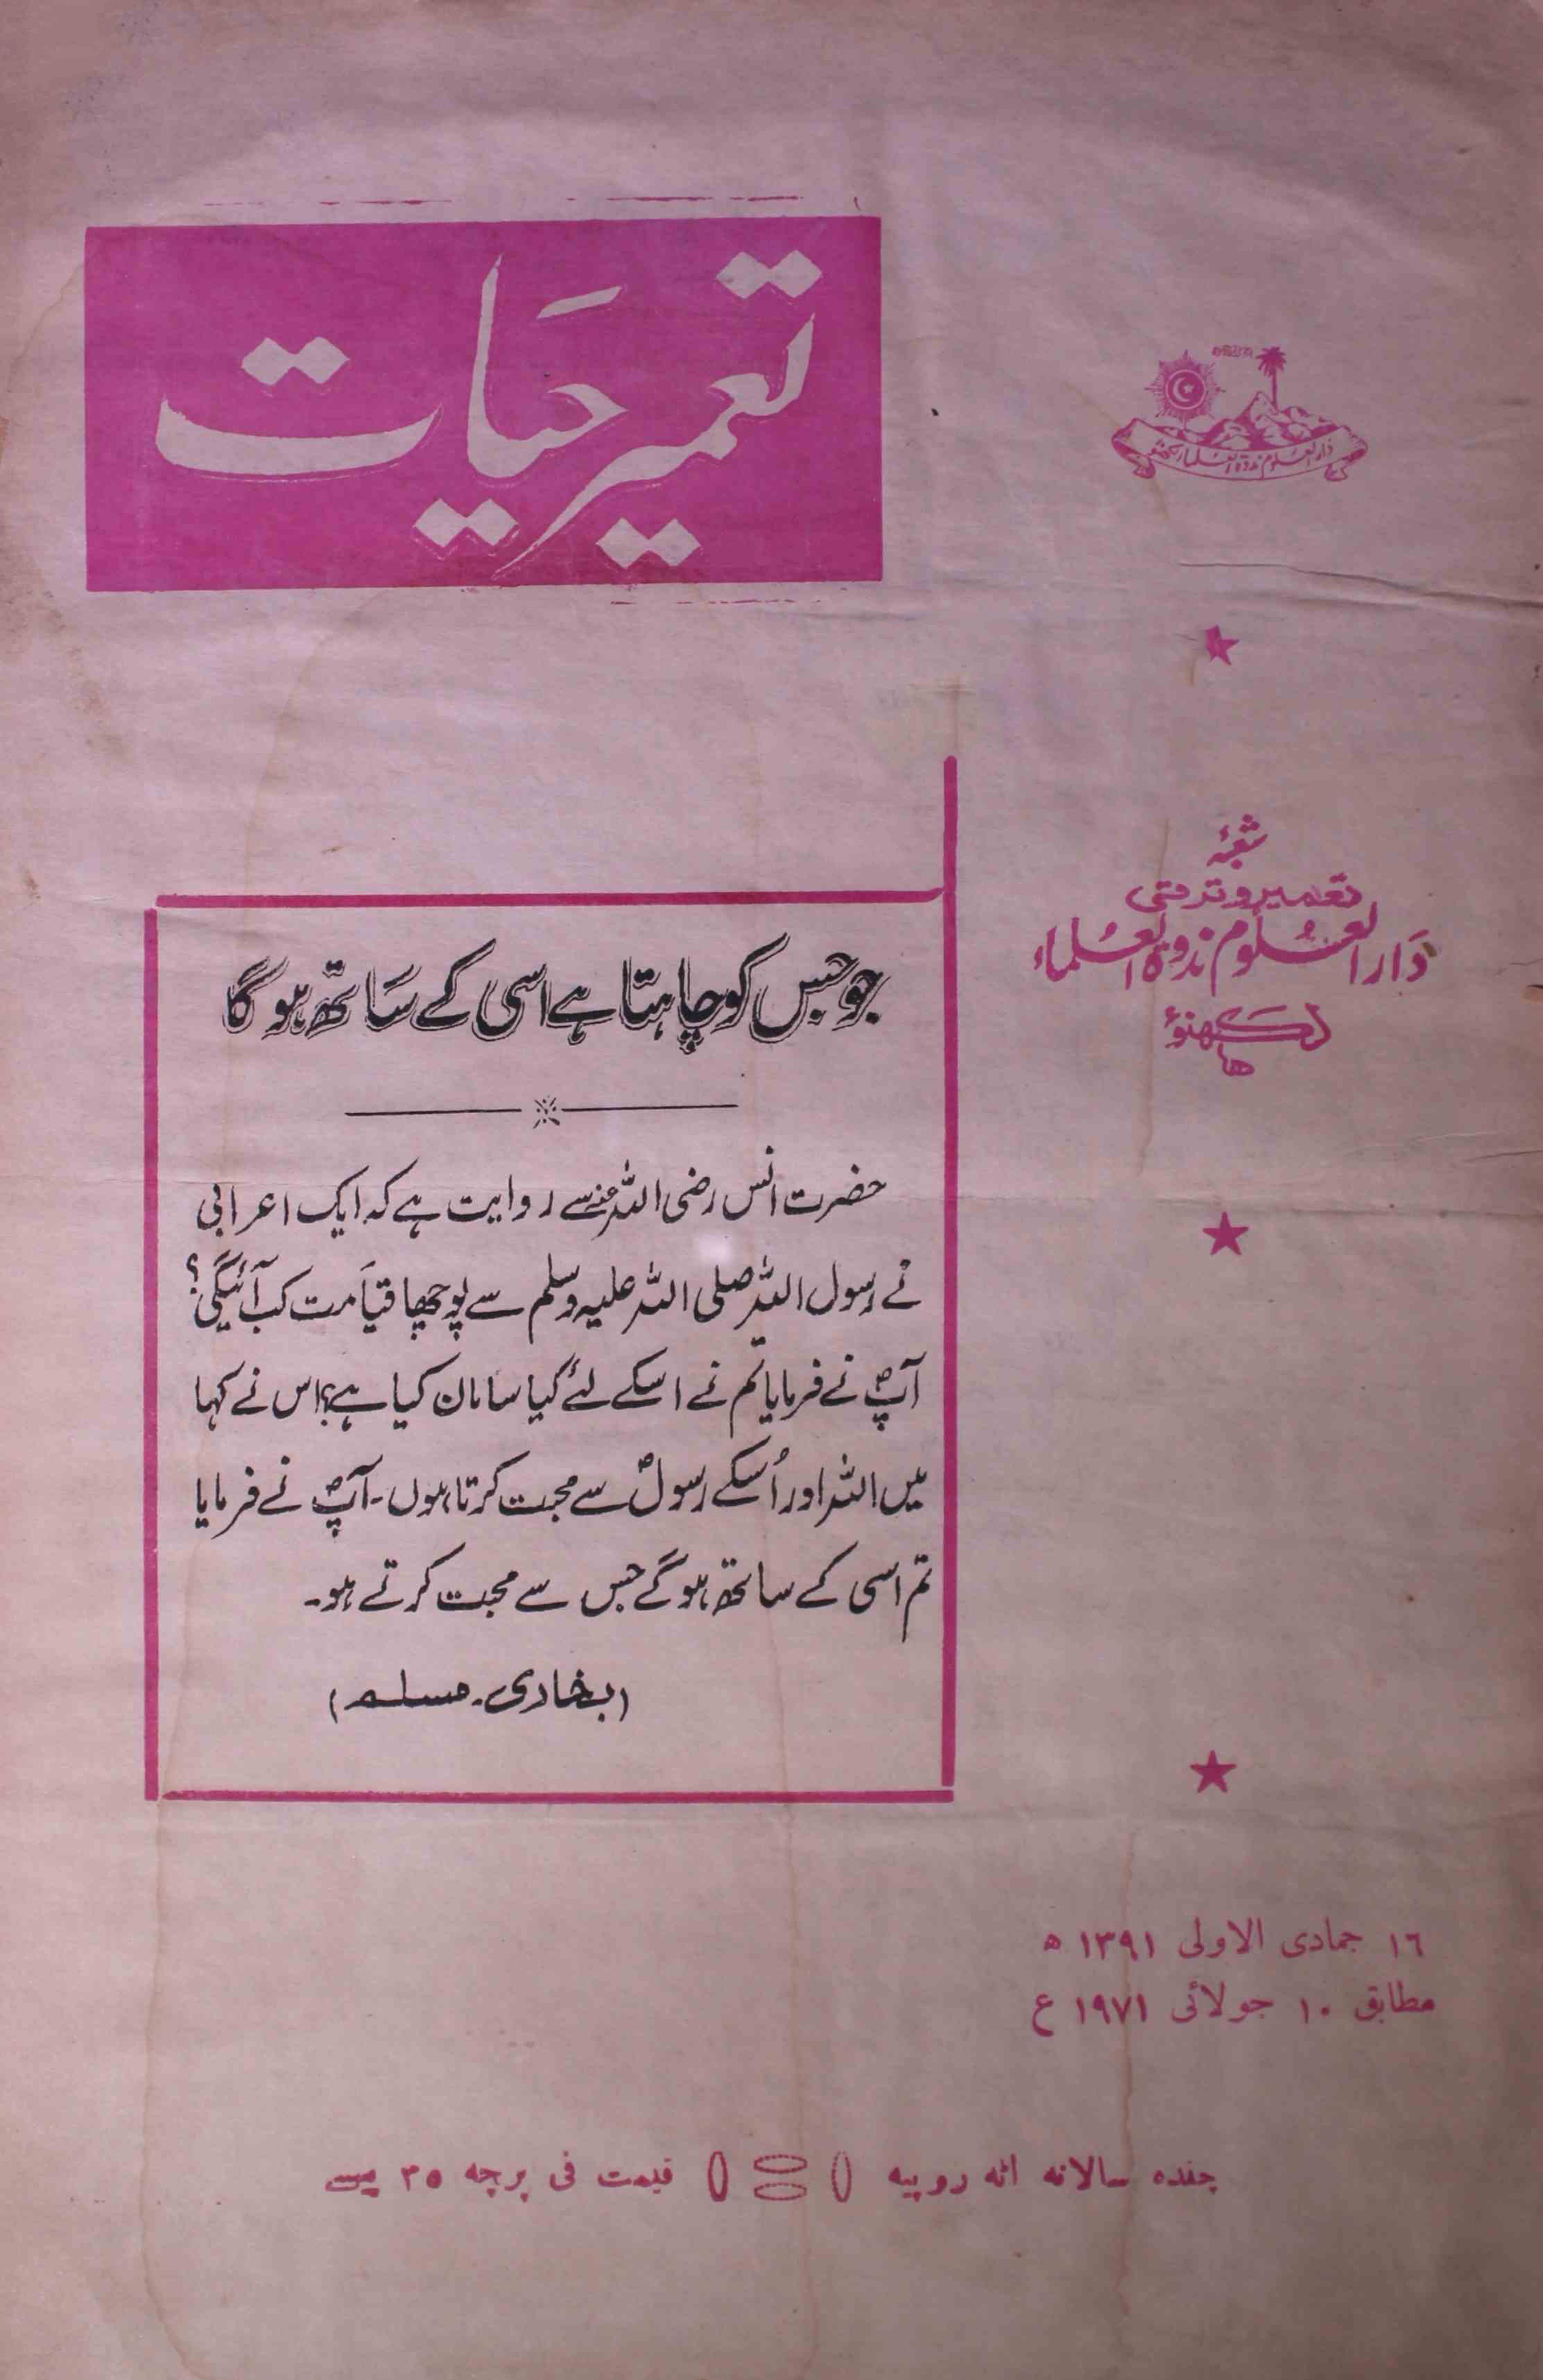 تعمیر حیات
دار العلوم ندوۃ العلماء لکھنؤ
شعبۂ
تعمیر و ترقی
دَار العُلوم ندوۃ العُلماء
لکھنوٴ
جو جس کو چاہتا ہے اسی کے سَاتھ ہوگا
حضرت انس رضی اللہ عنہ سے روایت ہے کہ ایک اعرابی
نے رسول اللہ صلی اللہ علیہ وسلم سے پوچھا قیاَمت کب آئیگی؟
آپؐ نے فرمایا تم نے اسکے لئے کیا سامان کیا ہے؟ اس نے کہا
میں اللہ اور اُسکے رسولؐ سے محبت کرتا ہوں۔ آپؐ نے فرمایا
تم اسی کے ساتھ ہوگے جس سے محبت کرتے ہو۔
(بخاری۔ مسلم)
١٦ جمادی الاولی ١٣٩١ ھ
مطابق ١٠ جولائی ١٩٧١ ع
چندہ سالانہ اٹھ روپیہ قیمت فی پرچہ ٣٥ پیسے